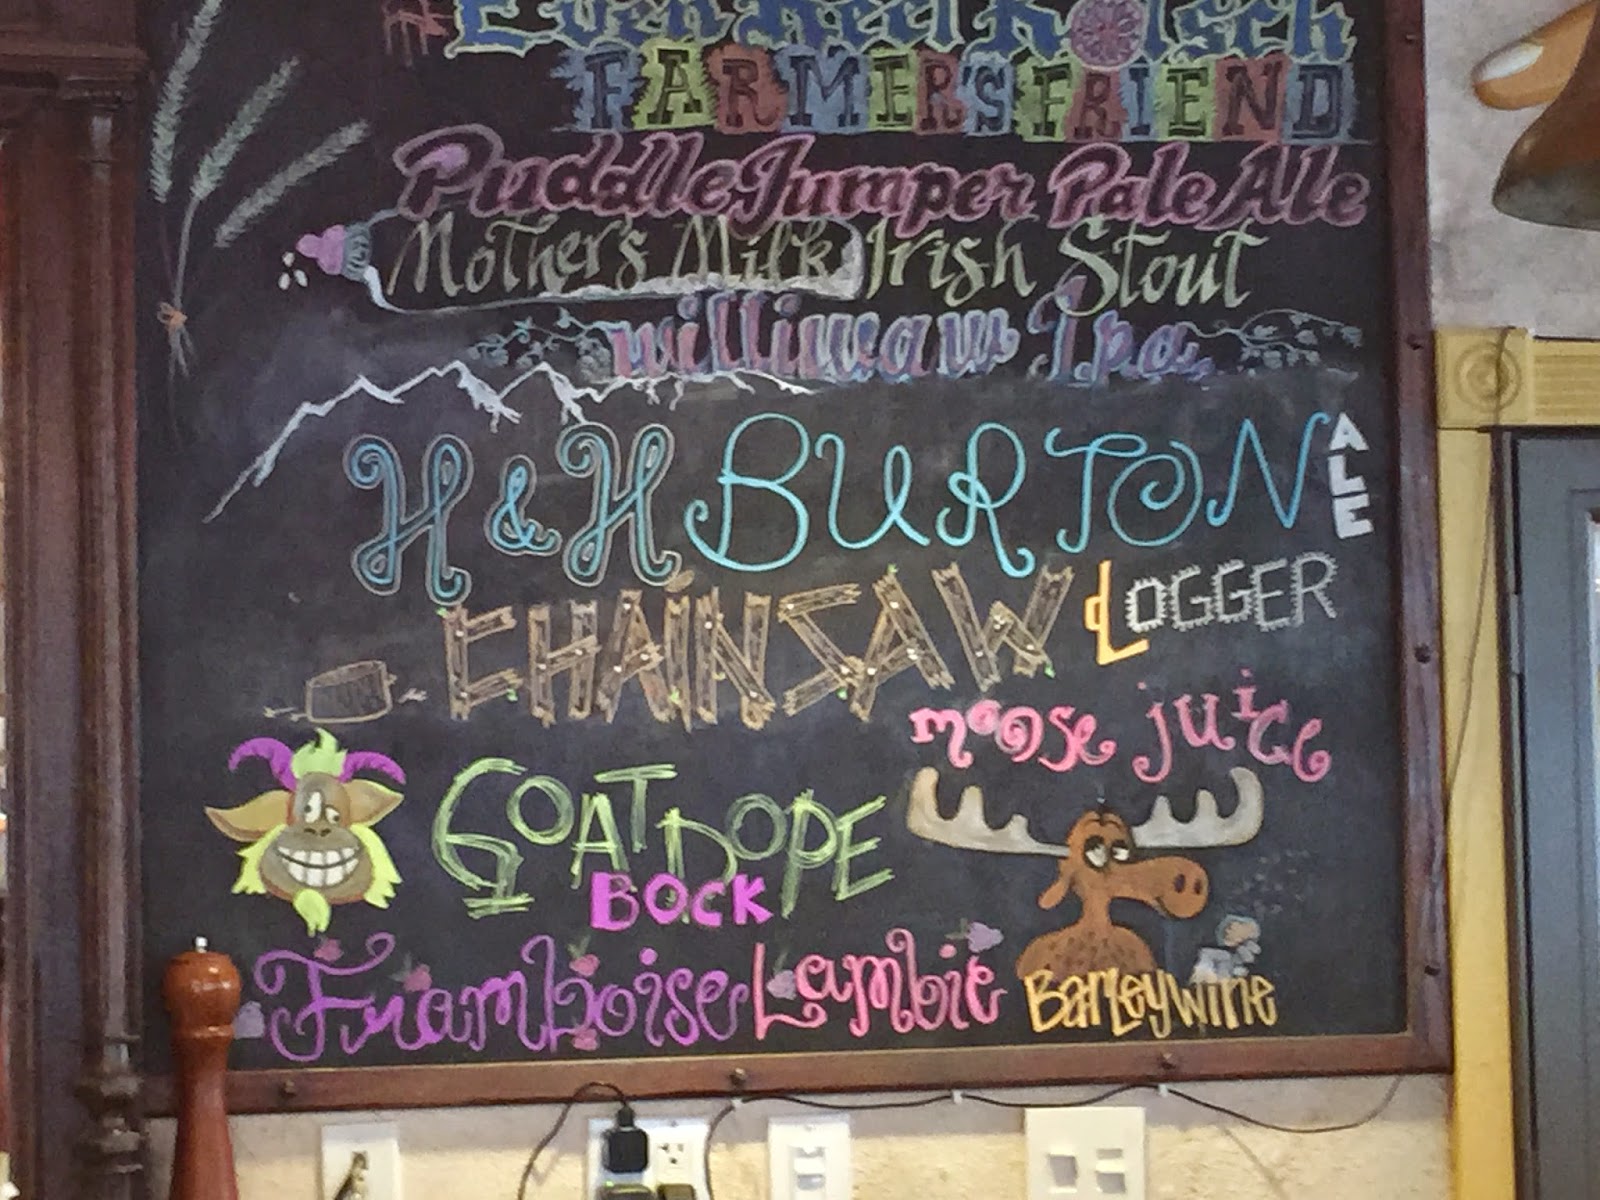 Even Keel Kölsch
FARMER'S FRIEND
Puddle Jumper Pale Ale
Mother's Milk Irish Stout
williwaw Ipa
H & H BURTON ALE
CHAINSAW LOGGER
moose juice
GOAT DOPE
BOCK
Framboise Lambic
Barleywine